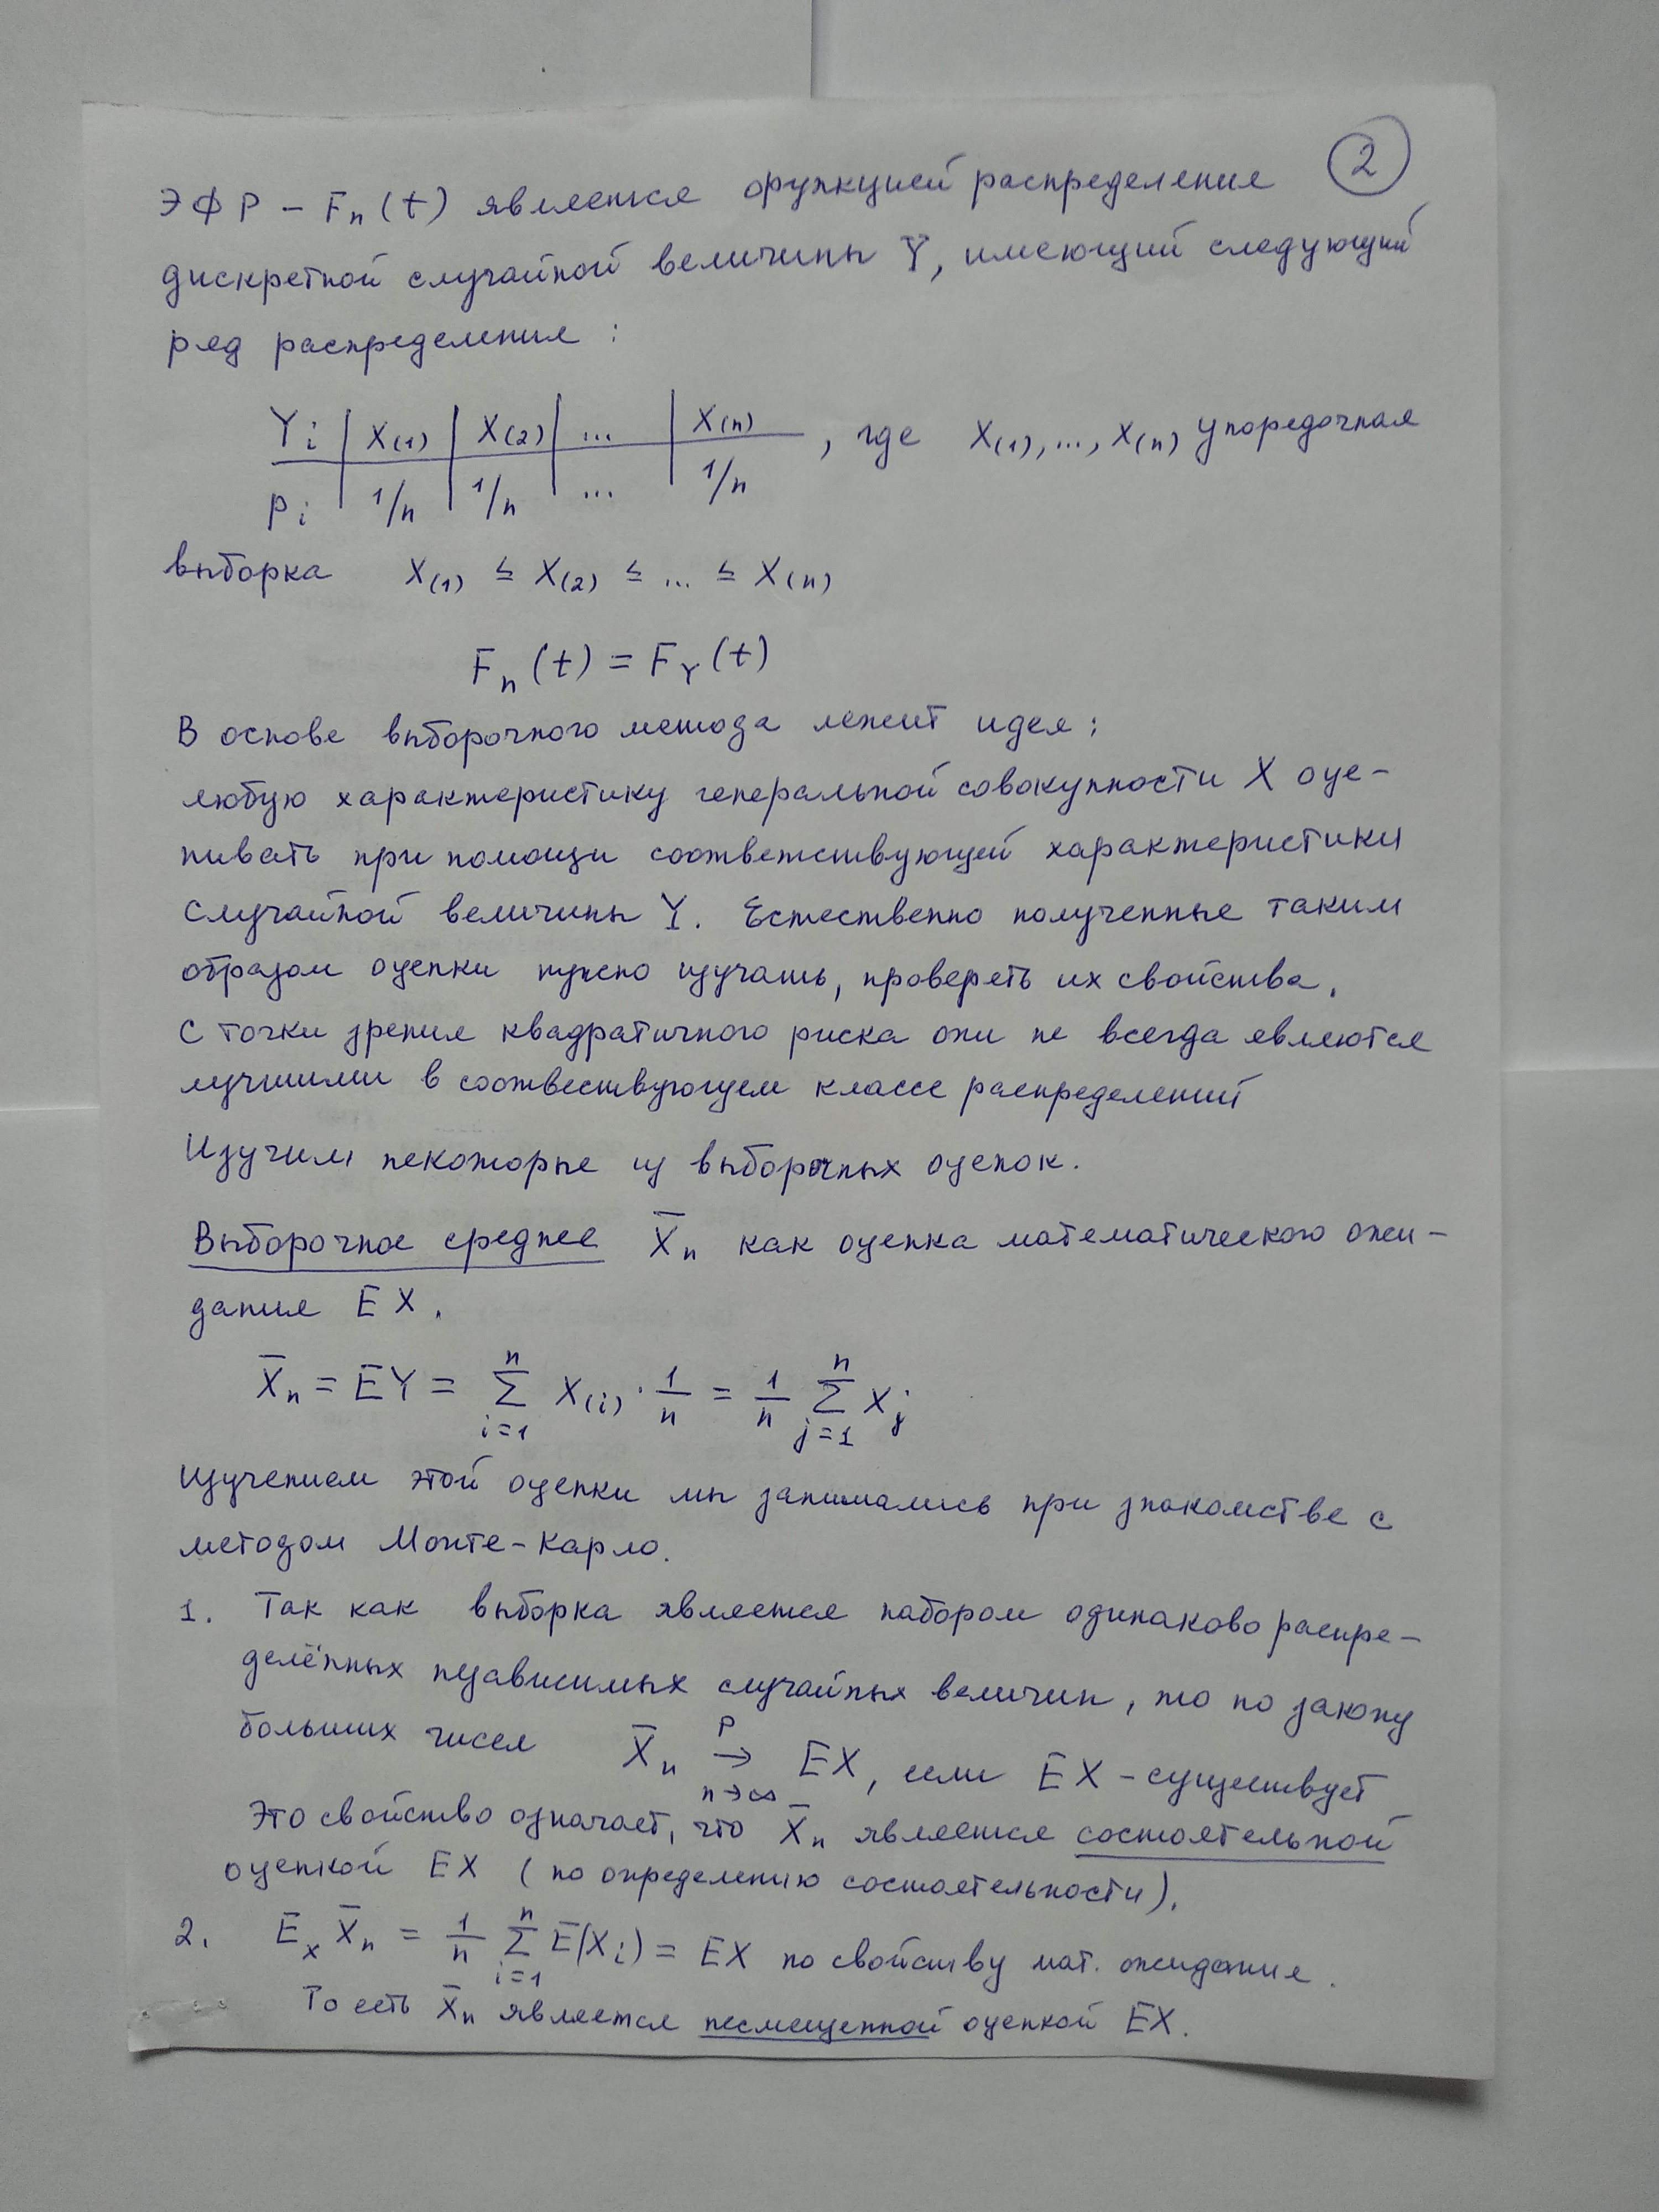 2
ЭФР – Fn(t) является функцией распределения
дискретной случайной величины Y, имеющий следующий
ряд распределения :
Yi | X(1) | X(2) | ... | X(n) , где X(1), ..., X(n) упорядочная
Pi | 1/n | 1/n | ... | 1/n
выборка X(1) ≤ X(2) ≤ ... ≤ X(n)
Fn(t) = FY(t)
В основе выборочного метода лежит идея:
любую характеристику генеральной совокупности X оце-
нивать при помощи соответствующей характеристики
случайной величины Y. Естественно полученные таким
образом оценки нужно изучать, проверять их свойства.
С точки зрения квадратичного риска они не всегда являются
лучшими в соотвествующем классе распределений
Изучим некоторые из выборочных оценок.
Выборочное среднее X̄n как оценка математического ожи-
дания EX.
X̄n = EY = Σ_{i=1}^{n} X(i) · 1/n = 1/n Σ_{j=1}^{n} Xj
Изучением этой оценки мы занимались при знакомстве с
методом Монте-Карло.
1. Так как выборка является набором одинаково распре-
делённых независимых случайных величин, то по закону
больших чисел X̄n →^{P}_{n→∞} EX, если EX – существует
Это свойство означает, что X̄n является состоятельной
оценкой EX (по определению состоятельности).
2. Ex X̄n = 1/n Σ_{i=1}^{n} E(Xi) = EX по свойству мат. ожидания.
То есть X̄n является несмещенной оценкой EX.